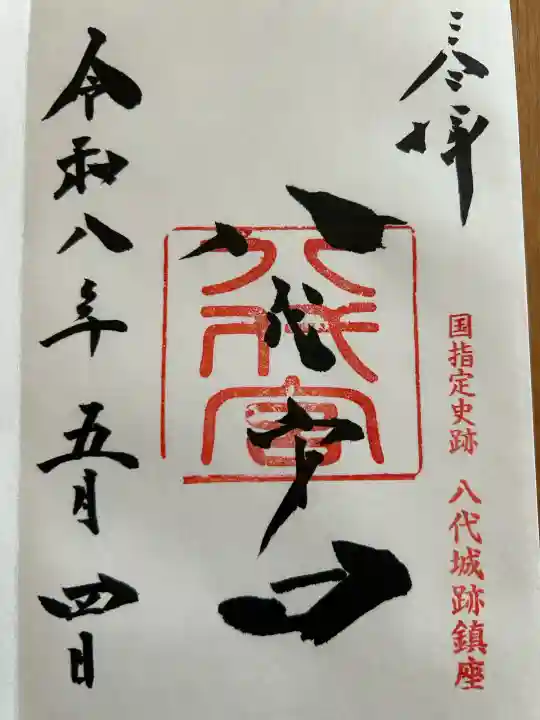 奉拝
国指定史跡 八代城跡鎮座
八代宮
八代宮
令和八年五月四日